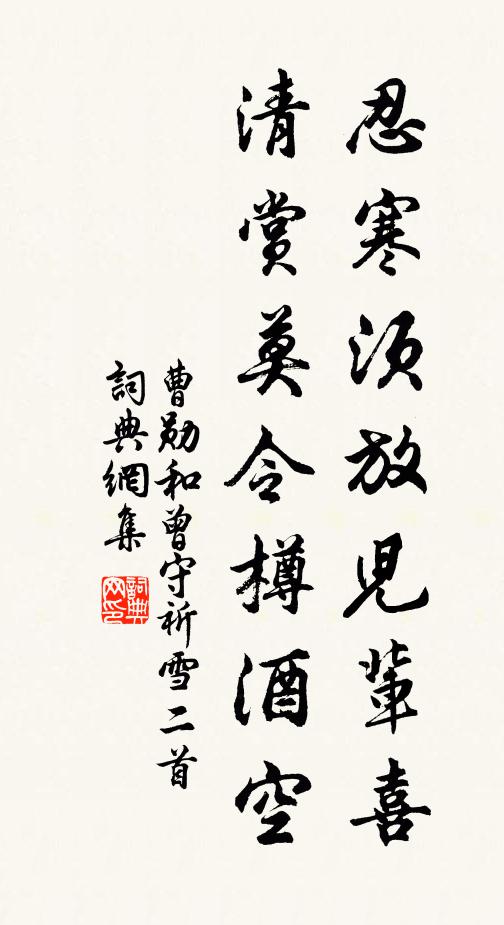 忍寒須放兒輩喜
清賞莫令樽酒空
曹勛和曾守祈雪二首
詞典網集
詞典网印